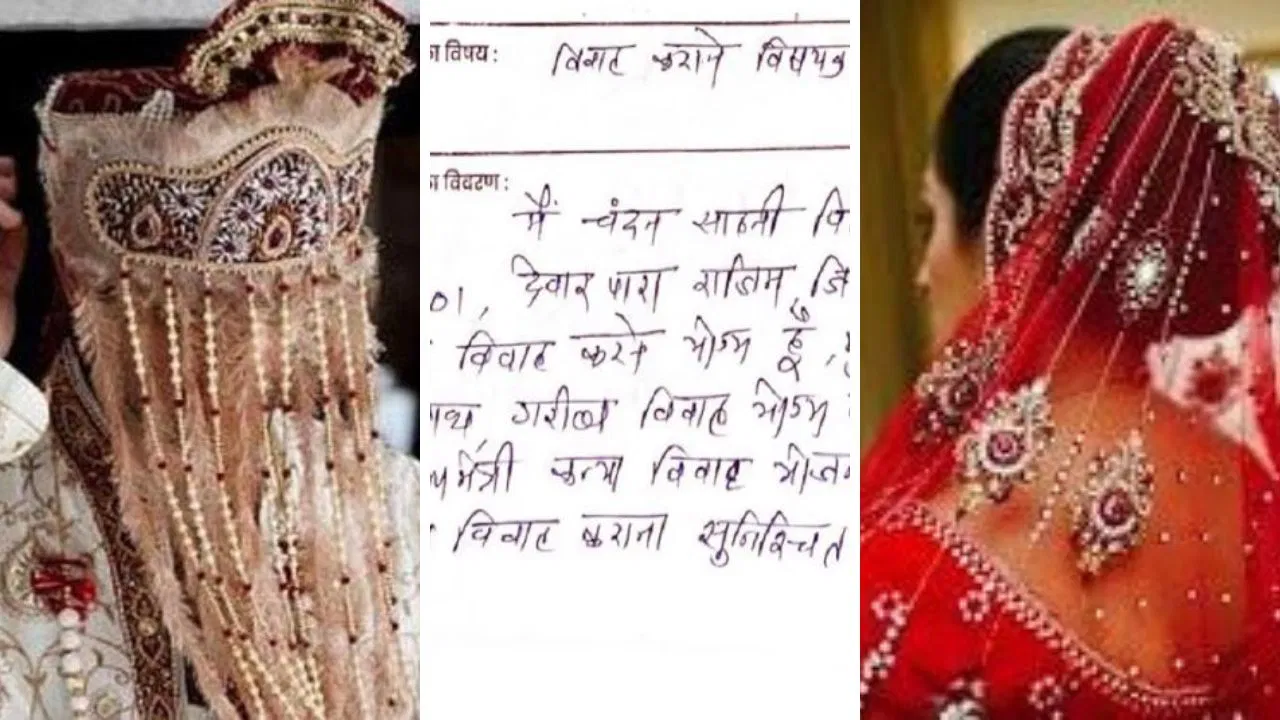 का विषय: विवाह कराने विषयक
का विवरण:
मैं चंदन साहनी वि
01, देवार पारा राजिम, जि
विवाह करने योग्य हूँ,
गरीब विवाह योग्य
मंत्री कन्या विवाह योजन
विवाह कराना सुनिश्चित